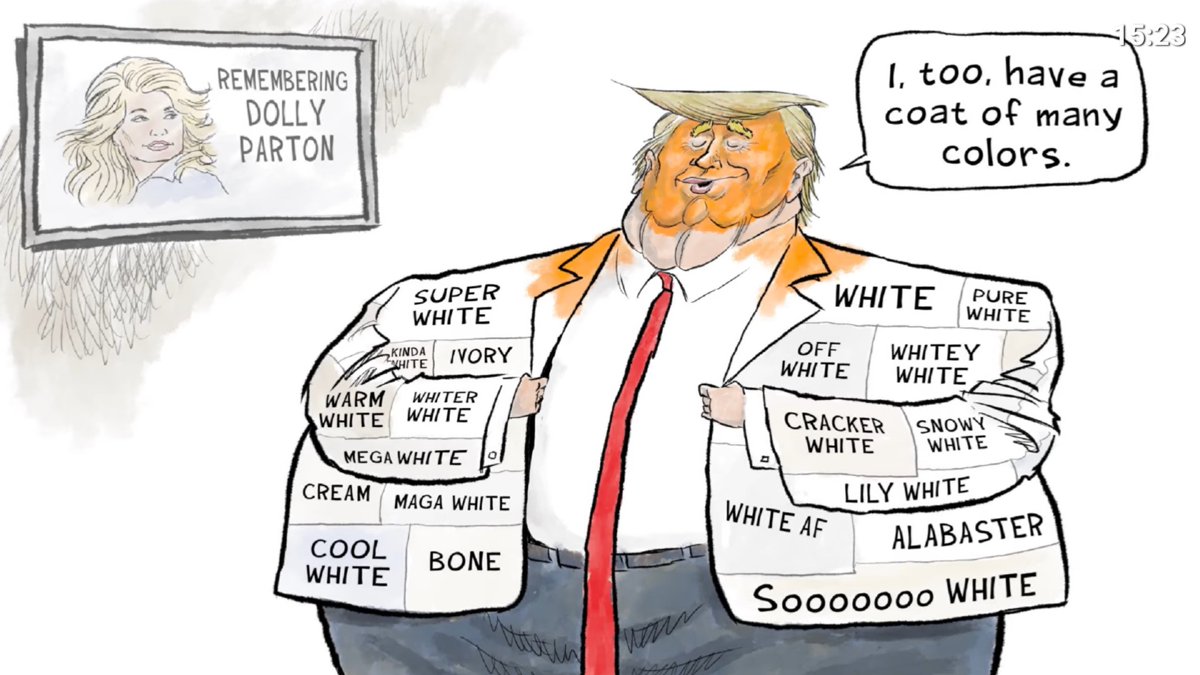 15:23
REMEMBERING
DOLLY
PARTON
I, too, have a
coat of many
colors.
SUPER
WHITE
KINDA
WHITE
IVORY
WARM
WHITE
WHITER
WHITE
MEGA WHITE
CREAM
MAGA WHITE
COOL
WHITE
BONE
WHITE
PURE
WHITE
OFF
WHITE
WHITEY
WHITE
CRACKER
WHITE
SNOWY
WHITE
LILY WHITE
WHITE AF
ALABASTER
Sooooooo WHITE